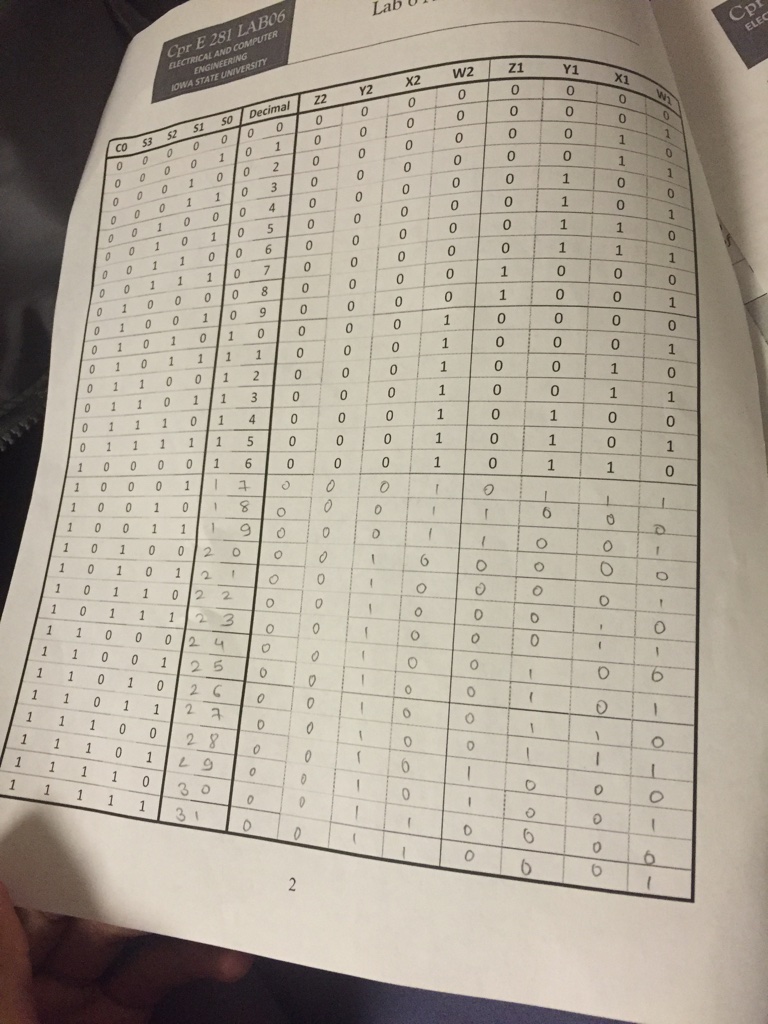 Cpr E 281 LAB06
ELECTRICAL AND COMPUTER
ENGINEERING
IOWA STATE UNIVERSITY
Lab
Cpr
ELEC
C0 S3 S2 S1 S0 Decimal Z2 Y2 X2 W2 Z1 Y1 X1 W1
0 0 0 0 0 0 0 0 0 0 0 0 0 0 0
0 0 0 0 1 0 1 0 0 0 0 0 0 0 1
0 0 0 1 0 0 2 0 0 0 0 0 0 1 0
0 0 0 1 1 0 3 0 0 0 0 0 0 1 1
0 0 1 0 0 0 4 0 0 0 0 0 1 0 0
0 0 1 0 1 0 5 0 0 0 0 0 1 0 1
0 0 1 1 0 0 6 0 0 0 0 0 1 1 0
0 0 1 1 1 0 7 0 0 0 0 0 1 1 1
0 1 0 0 0 0 8 0 0 0 0 1 0 0 0
0 1 0 0 1 0 9 0 0 0 0 1 0 0 1
0 1 0 1 0 1 0 0 0 0 1 0 0 0 0
0 1 0 1 1 1 1 0 0 0 1 0 0 0 1
0 1 1 0 0 1 2 0 0 0 1 0 0 1 0
0 1 1 0 1 1 3 0 0 0 1 0 0 1 1
0 1 1 1 0 1 4 0 0 0 1 0 1 0 0
0 1 1 1 1 1 5 0 0 0 1 0 1 0 1
1 0 0 0 0 1 6 0 0 0 1 0 1 1 0
1 0 0 0 1 1 7 0 0 0 1 0 1 1 1
1 0 0 1 0 1 8 0 0 0 1 1 0 0 0
1 0 0 1 1 1 9 0 0 0 1 1 0 0 1
1 0 1 0 0 2 0 0 0 1 0 0 0 0 0
1 0 1 0 1 2 1 0 0 1 0 0 0 0 1
1 0 1 1 0 2 2 0 0 1 0 0 0 1 0
1 0 1 1 1 2 3 0 0 1 0 0 0 1 1
1 1 0 0 0 2 4 0 0 1 0 0 1 0 0
1 1 0 0 1 2 5 0 0 1 0 0 1 0 1
1 1 0 1 0 2 6 0 0 1 0 0 1 1 0
1 1 0 1 1 2 7 0 0 1 0 0 1 1 1
1 1 1 0 0 2 8 0 0 1 0 1 0 0 0
1 1 1 0 1 2 9 0 0 1 0 1 0 0 1
1 1 1 1 0 3 0 0 0 1 1 0 0 0 0
1 1 1 1 1 3 1 0 0 1 1 0 0 0 1
2